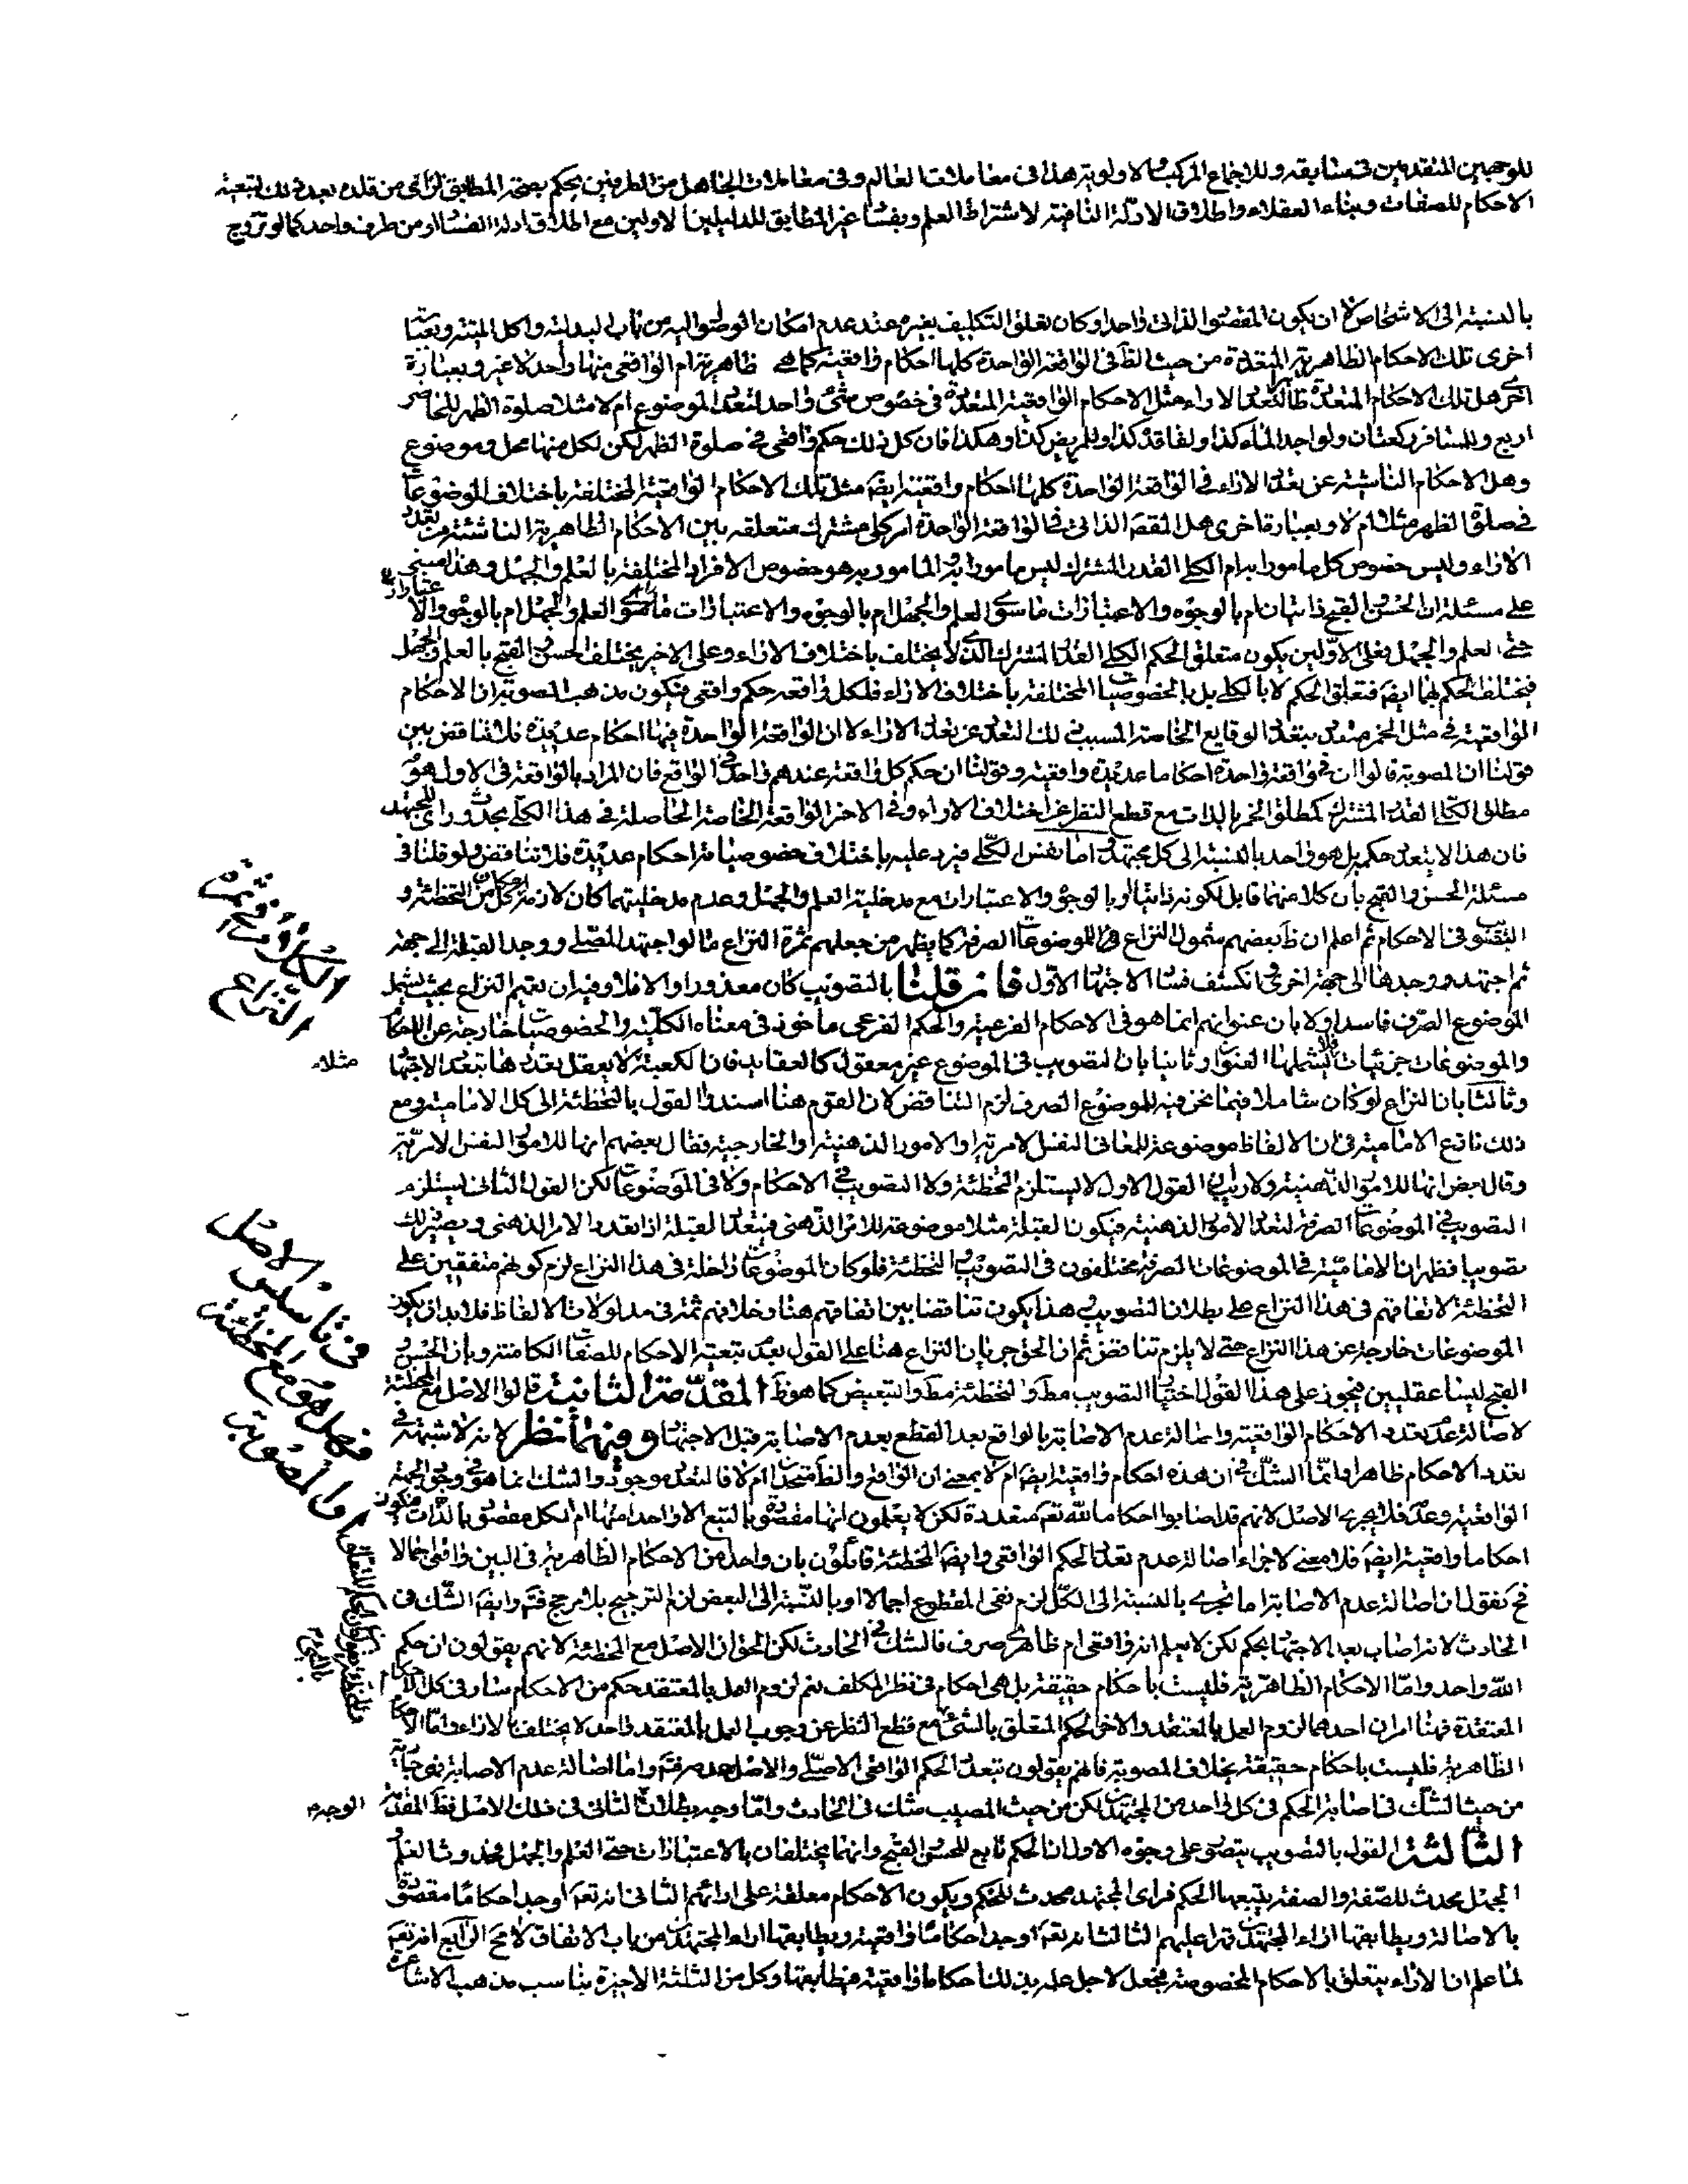 للوجهين المتقدمين في سابقه وللاجماع المركب بالاولوية هذا في معاملات العالم وفي معاملات الجاهل من الطرفين يحكم بصحة المطابق لرأى من قلده بعد ذلك لتبعية
الاحكام للصفات وبناء العقلاء واطلاق الادلة النافية لاشتراط العلم وبفساد غير المطابق للدليلين الاولين مع اطلاق ادلة الفساد او من طرف واحد كما لو تزوج
بالنسبة الى الاشخاص ان يكون المقصود الذاتى واحدا وكان تعلق التكليف بغيره عند عدم امكان الوصول اليه من باب البدلية واكل الميتة وبعبارة
اخرى تلك الاحكام الظاهرية المتعددة من حيث الظن فى الواقعة الواحدة كلها احكام واقعية كما هى ظاهرية ام الواقعى منها واحد لا غير وبعبارة
اخرى هل تلك الاحكام المتعددة بتعدد الاراء مثل الاحكام الواقعية المتعددة فى خصوص شئ واحد لتعدد الموضوع ام لا مثلا صلوة الظهر للحاضر
اربع وللمسافر ركعتان ولواجد الماء كذا ولفاقده كذا وللمريض كذا وهكذا فان كل ذلك حكم واقعى فى صلوة الظهر لكن لكل منها محل وموضوع
وهل الاحكام الناشئة عن تعدد الاراء فى الواقعة الواحدة كلها احكام واقعية ايضا مثل تلك الاحكام الواقعية المختلفة باختلاف الموضوعات
فى صلوة الظهر مثلا ام لا وبعبارة اخرى هل المقصد الذاتى فى الواقعة الواحدة امر كلى مشترك متعلقه بين الاحكام الظاهرية الناشئة من تعدد
الاراء وليس خصوص كل مامورا به ام الكلى القدر المشترك ليس مامورا به المامور به هو خصوص الافراد المختلفة بالعلم والجهل وهذا مبنى
على مسئلة ان الحسن والقبح ذاتيان ام بالوجوه والاعتبارات ما سوى العلم والجهل ام بالوجوه والاعتبارات ما سوى العلم والجهل ام بالوجوه والاعتبارات
حتى العلم والجهل فعلى الاولين يكون متعلق الحكم الكلى القدر المشترك الذى لا يختلف باختلاف الاراء وعلى الاخير يختلف الحسن والقبح بالعلم والجهل
فيختلف الحكم بهما ايضا فتعلق الحكم لا بالكلى بل بالخصوصيات المختلفة باختلاف الاراء فلكل واقعة حكم واقعى فيكون مذهب المصوبة ان الاحكام
الواقعية فى مثل الخمر متعدد بتعدد الوقايع الخاصة المسبب ذلك التعدد عن تعدد الاراء لا ان الواقعة الواحدة فيها احكام عديدة فلا تناقض بين
قولنا ان المصوبة قالوا ان فى واقعة واحدة احكاما عديدة واقعية وقولنا ان حكم كل واقعة عندهم واحد فى الواقع فان المراد بالواقعة فى الاول هو
مطلق الكلى القدر المشترك كمطلق الخمر بالذات مع قطع النظر عن اختلاف الاراء وفى الاخر الواقعة الخاصة الحاصلة فى هذا الكلى بحدوث راى للمجتهد
فان هذا لا يتعدد حكمه بل هو واحد بالنسبة الى كل مجتهد واما نفس الكلى فيرد عليه باختلاف خصوصياته احكام عديدة فلا تناقض ولو قلنا فى
مسئلة الحسن والقبح بان كلا منهما قابل لكونه ذاتيا او بالوجوه والاعتبارات مع مدخلية العلم والجهل وعدم مدخليتهما كان لازمه امكان كل من التخطئة و
التصويب فى الاحكام ثم اعلم ان ظاهر بعضهم شمول النزاع للموضوعات الصرفة كما يظهر من جعلهم ثمرة النزاع ما لو اجتهد المصلى ووجد القبلة الى جهة
ثم اجتهد ووجدها الى جهة اخرى وانكشف فساد الاجتهاد الاول فان قلنا بالتصويب كان معذورا والا فلا وفيه ان تعميم النزاع بحيث يشمل
الموضوع الصرف فاسد اولا بان عنوانهم انما هو فى الاحكام الفرعية والحكم الفرعى ماخوذ فى معناه الكلية والخصوصيات خارجة عن الاحكام
والموضوعات جزئيات فلا يشملها العنوان وثانيا بان التصويب فى الموضوع غير معقول كالعقايد فان الكعبة لا يعقل تعددها بتعدد الاجتهاد مثلا
وثالثا بان النزاع لو كان شاملا فيما نحن فيه للموضوع الصرف لزم التناقض لان القوم هنا اسندوا القول بالتخطئة الى كل الامامية ومع
ذلك نازع الامامية فى ان الالفاظ موضوعة للمعانى النفس الامرية او الامور الذهنية او الخارجية فقال بعضهم انها للامور النفس الامرية
وقال بعض انها للامور الذهنية ولا ريب ان القول الاول لا يستلزم التخطئة ولا التصويب فى الاحكام ولا فى الموضوعات لكن القول الثانى يستلزم
التصويب فى الموضوعات الصرفة لتعدد الامور الذهنية فيكون القبلة مثلا موضوعة للامر الذهنى فيتعدد القبلة اذا تعدد الامر الذهنى ويصير ذلك
تصويبا فظهر ان الامامية فى الموضوعات الصرفة مختلفون فى التصويب والتخطئة فلو كان الموضوعات داخلة فى هذا النزاع لزم كونهم متفقين على
التخطئة لاتفاقهم فى هذا النزاع على بطلان التصويب هذا يكون تناقضا بين اتفاقهم هنا وخلافهم ثمة فى مدلولات الالفاظ فلا بد ان يكون
الموضوعات خارجة عن هذا النزاع حتى لا يلزم تناقض ثم ان الحق جريان النزاع هنا على القول بعدم تبعية الاحكام للصفات الكامنة وبان الحسن و
القبح ليسا عقليين فيجوز على هذا القول اختيار التصويب مط والتخطئة مط والتبعيض كما هو ظ المقدمة الثانية قالوا الاصل مع المخطئة
لاصالة عدم تعدد الاحكام الواقعية واصالة عدم الاصابة بالواقع بعد القطع بعدم الاصابة قبل الاجتهاد وفيهما نظر لانه لا شبهة فى
تعدد الاحكام ظاهرا وانما الشك فى ان هذه احكام واقعية ايضا ام لا بمعنى ان الواقع والظ متحدان ام لا فالتعدد موجود والشك انما هو فى وجود الجهة
الواقعية وعدمه فلا يجرى الاصل لانهم قد اصابوا احكاما لله تعالى متعددة لكن لا يعلمون انها مقصودة بالتبع الا واحدا منها ام الكل مقصود بالذات فيكون
احكاما واقعية ايضا فلا معنى لاجراء اصالة عدم تعدد الحكم الواقعى وايضا المخطئة قائلون بان واحدا من الاحكام الظاهرية فى البين واقعى اجمالا
فح نقول ان اصالة عدم الاصابة اما تجرى بالنسبة الى الكل لزم نفى المقطوع اجمالا او بالنسبة الى البعض لزم الترجيح بلا مرجح فتم وايضا الشك فى
الحادث لانه اصاب بعد الاجتهاد بحكم لكن لا يعلم انه واقعى ام ظاهرى صرف فالشك فى الحادث لكن الحق ان الاصل مع المخطئة لانهم يقولون ان حكم
الله واحد واما الاحكام الظاهرية فليست باحكام حقيقة بل هى احكام فى نظر المكلف نعم لزوم العمل بالمعتقد حكم من الاحكام سار فى كل الاحكام
المعتقدة فهنا امران احدهما لزوم العمل بالمعتقد والاخر الحكم المتعلق بالشئ مع قطع النظر عن وجوب العمل بالمعتقد واحد لا يختلف بالاراء واما الاحكام
الظاهرية فليست باحكام حقيقة بخلاف المصوبة فانهم يقولون بتعدد الحكم الواقعى الاصلى والاصل عدمه واما اصالة عدم الاصابة فهى جارية
من حيث الشك فى اصابة الحكم فى كل واحد من المجتهدين لكن من حيث المصيب شك فى الحادث واما وجه بطلان الثانى فى ذلك الاصل فظ المقدمة
الثالثة القول بالتصويب يتصور على وجوه الاول ان الحكم تابع للحسن والقبح وانهما يختلفان بالاعتبارات حتى العلم والجهل فحدوث العلم و
الجهل محدث للصفة والصفة يتبعها الحكم فراى المجتهد محدث للحكم ويكون الاحكام معلقة على ارائهم الثانى انه تعالى اوجد احكاما مقصودة
بالاصالة ويطابقها اراء المجتهدين قهرا عليهم الثالث انه تعالى اوجد احكاما واقعية ويطابقها اراء المجتهدين من باب الاتفاق الرابع انه تعالى
لما علم ان الاراء يتعلق بالاحكام المخصوصة فجعل لاجل علمه بذلك احكاما واقعية فيطابقها وكل من الثلثة الاخيرة يناسب مذهب الاشاعرة
الكلام فى ثمرة
النزاع
فى تاسيس الاصل
فهل هو مع المخطئة
او المصوبة